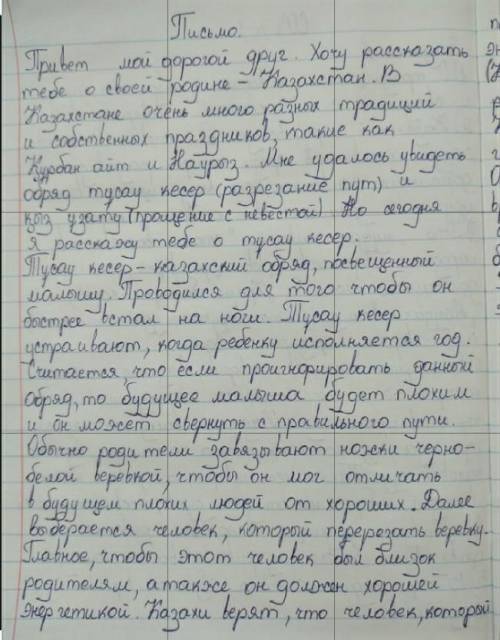 Письмо.
Привет мой дорогой друг. Хочу рассказать
тебе о своей родине - Казахстан. В
Казахстане очень много разных традиций
и собственных праздников, такие как
Курбан айт и Наурыз. Мне удалось увидеть
обряд тусау кесер (разрезание пут) и
қыз узату (прощение с невестой). Но сегодня
я расскажу тебе о тусау кесер.
Тусау кесер - казахский обряд, посвещенный
малышу. Проводился для того чтобы он
быстрее встал на ноги. Тусау кесер
устраивают, когда ребенку исполняется год.
Считается, что если проигнорировать данный
обряд, то будущее малыша будет плохим
и он может свернуть с правильного пути.
Обычно родители завязывают ножки черно-
белой веревкой, чтобы он мог отличать
в будущем плохих людей от хороших. Далее
выберается человек, который перерезать веревку.
Главное, чтобы этот человек был близок
родителям, а также он должен хорошей
энергетикой. Казахи верят, что человек, который